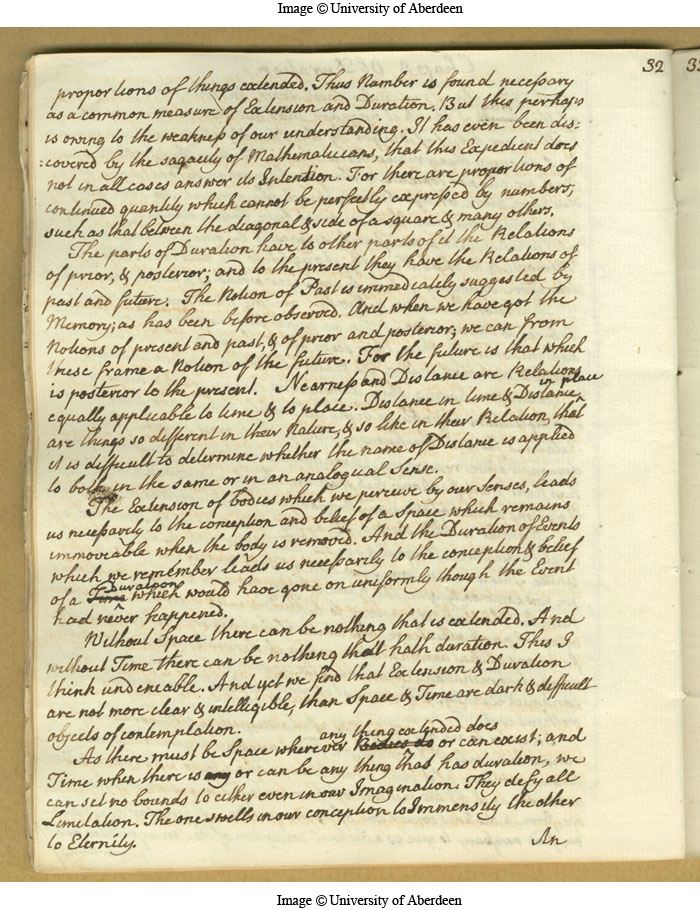 Image © University of Aberdeen
32
proportions of things extended. Thus Number is found necessary
as a common measure of Extension and Duration. But this perhaps
is owing to the weakness of our understanding. It has even been dis:
:covered by the sagacity of Mathematicians, that this Expedient does
not in all cases answer its Intention. For there are proportions of
continued quantity which cannot be perfectly expressed by numbers,
such as that between the diagonal & side of a square & many others.
The parts of Duration have to other parts of it the Relations
of prior, & posterior; and to the present they have the Relations of
past and future. The Notion of Past is immediately suggested by
Memory, as has been before observed. And when we have got the
Notions of present and past, & of prior and posterior; we can from
these frame a Notion of the future. For the future is that which
is posterior to the present. Nearness and Distance are Relations
equally applicable to time & to place. Distance in time & Distance in place
are things so different in their Nature, & so like in their Relation, that
it is difficult to determine whether the name of Distance is applied
to both in the same or in an analogical Sense.
The Extension of bodies which we perceive by our Senses, leads
us necessarily to the conception and belief of a Space which remains
immoveable when the body is removed. And the Duration of Events
which we remember leads us necessarily to the conception & belief
of a Time Duration which would have gone on uniformly though the Event
had never happened.
Without Space there can be nothing that is extended. And
without Time there can be nothing that hath duration. This I
think undeniable. And yet we find that Extension & Duration
are not more clear & intelligible, than Space & Time are dark & difficult
objects of contemplation.
As there must be Space wherever Bodies do any thing extended does or can exist; and
Time when there is any or can be any thing that has duration, we
can set no bounds to either even in our Imagination. They defy all
Limitation. The one swells in our conception to Immensity the other
to Eternity.
An
Image © University of Aberdeen